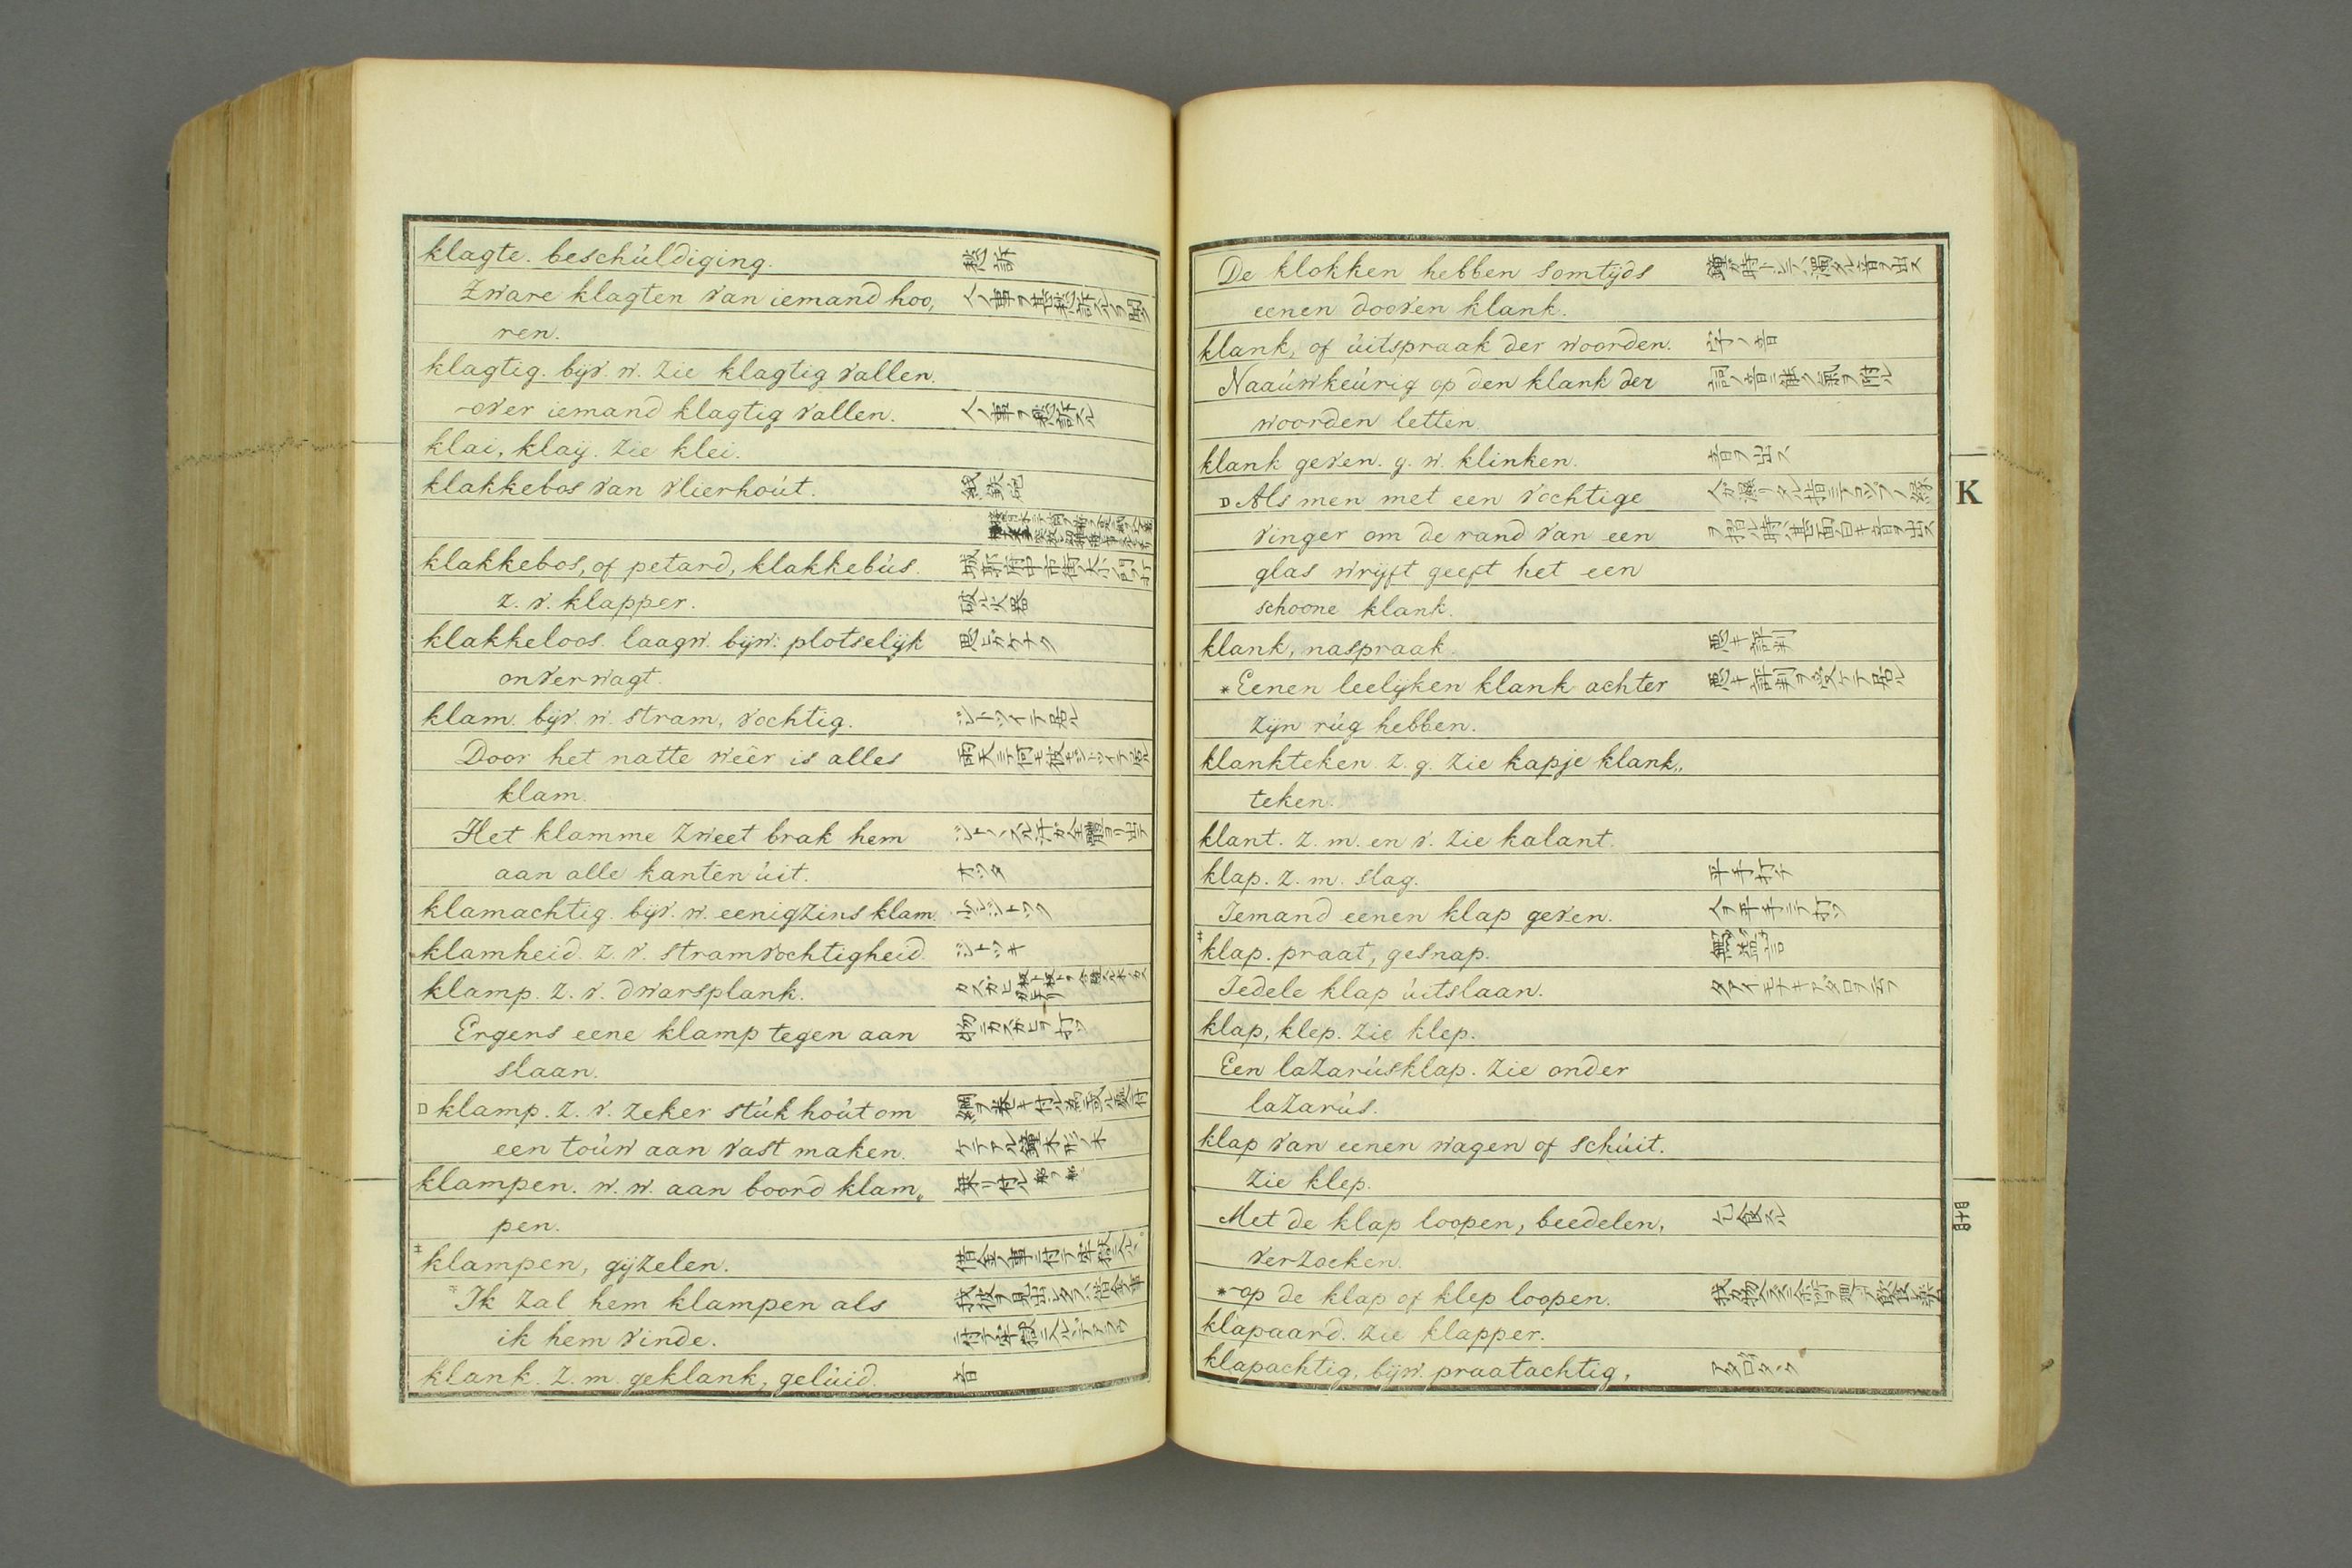 klagte. beschúldiging. 愁訴
Zware klagten van iemand hoo, 人ノ事ヲ甚愁訴スルヲ聞ク
ren.
klagtig. bijv. w. zie klagtig vallen.
-over iemand klagtig vallen. 人ノ事ヲ愁訴スル
klai, klaij. zie klei.
klakkebos van vlierhoút.
klakkebos, of petard, klakkebús.
z. v. klapper. 破ル火器
klakkeloos. laagw. bijw: plotselijk 思ヒガケナク
onverwagt.
klam. bijv. w. stram, vochtig. ジトツイテ居ル
Door het natte weêr is alles 雨天ニテ何モ彼モジトツイテ居ル
klam.
Het klamme zweet brak hem
aan alle kanten úit.
klamachtig. bijv. w. eenigzins klam.
klamheid. z. v. stramvochtigheid. ジトツキ
klamp. z. v. dwarsplank.
Ergens eene klamp tegen aan 物ニカスガヒヲ打ツ
slaan.
D klamp. z. v. zeker stúk hoút om
een toúw aan vast maken.
klampen. w. w. aan boord klam„ 乗リ付ル
pen.
klampen, gijzelen. 借金ノ事ニ付テ牢獄ニ入ル
Ik zal hem klampen als
ik hem vinde.
klank. z. m. geklank, gelúid. 音
De klokken hebben somtijds 鐘ガ時トシテハ濁タル音ヲ出ス
eenen dooven klank.
klank, of úitspraak der woorden. 字ノ音
Naaúwkeúrig op den klank der 詞ノ音ニ能ク氣ヲ附ル
woorden letten.
klank geven. g. w. klinken. 音ヲ出ス
D Als men met een vochtige 人ガ濕リタル指ニテコップノ縁
vinger om de rand van een ヲ摺ル時ハ甚面白キ音ヲ出ス
glas wrijft geeft het een
schoone klank.
klank, naspraak. 悪キ評判
* Eenen leelijken klank achter 悪キ評判ヲ受ケテ居ル
zijn rúg hebben.
klankteken. z. g. zie kapje klank„
teken.
klant. z. m. en v. zie kalant.
klap. z. m. slag. 平手打チ
Iemand eenen klap geven. 人ヲ平手ニテ打ツ
klap. praat, gesnap. 無益言
Iedele klap úitslaan.
klap, klep. zie klep.
Een lazarúsklap. zie onder
lazarús.
klap van eenen wagen of schúit.
zie klep.
Met de klap loopen, beedelen, 乞食スル
verzoeken.
* -op de klap of klep loopen.
klapaard. zie klapper.
klapachtig, bijw. praatachtig,
K